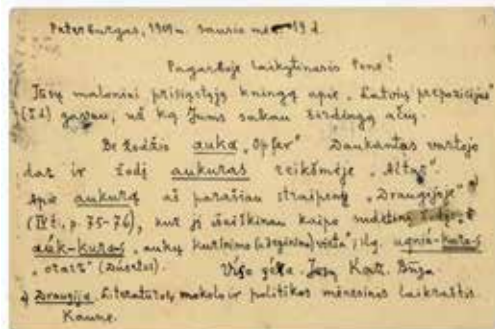 Peterburgas, 1909 m. sausio mėn. 19 d.
Pagarboje laikytinasis Pone!
Jūsų maloniai prisiųstąją kningą apie „Latvių prepozicijas"
(I d.) gavau, už ką Jums sakau širdingą ačių.
Be žodžio auka „Opfer" Daukantas vartoja
dar ir žodį aukuras reikšmėje „Altar".
Apie aukurą aš parašiau straipsnį „Draugijoje" *)
(IV t., p. 75-76), kur jį išaiškinau kaipo sudėtinį žodį:
aúk-kuras „aukų kurinimo (deginimo) vieta"; plg. ugniã-kuras
(Dúsetos). Viso gėlo. Jūsų Kaz. Būga
*) Draugija. Literatūros, mokslo ir politikos mėnesinis laikraštis.
Kaune.